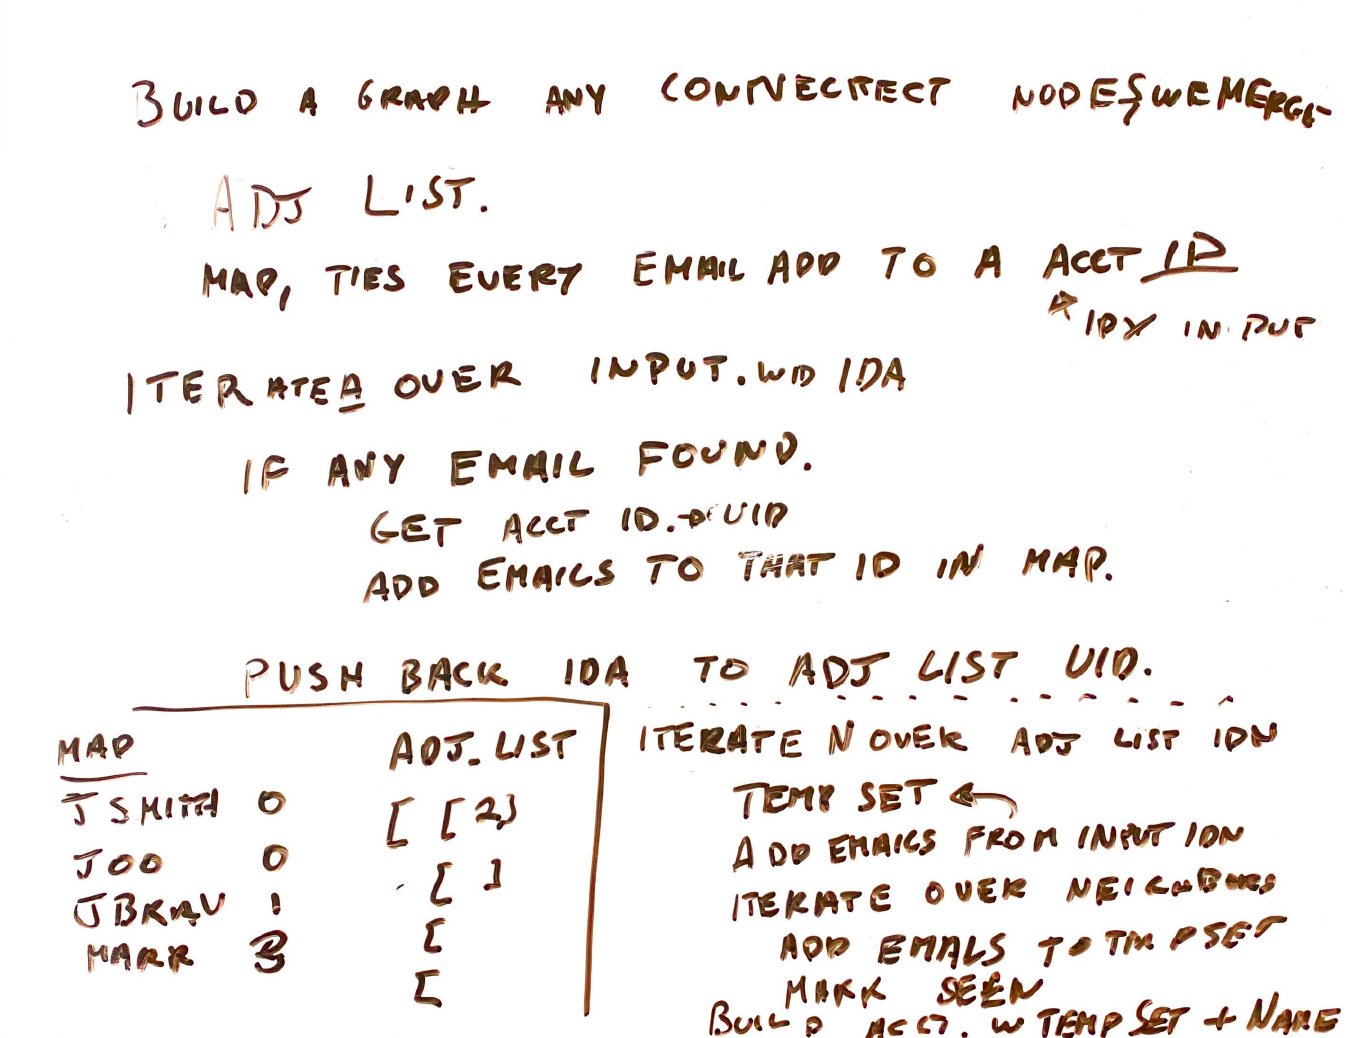 BUILD A GRAPH ANY CONNECTECT NODES WE MERGE
ADJ LIST.
MAP, TIES EVERY EMAIL ADD TO A ACCT ID
IDX INPUT
ITERATE A OVER INPUT. W ID IDA
IF ANY EMAIL FOUND.
GET ACCT ID. → UID
ADD EMAILS TO THAT ID IN MAP.
PUSH BACK IDA TO ADJ LIST UID.
MAP
JSMITH 0
JOO 0
JBRAV 1
MARR 3
ADJ. LIST
[ [2]
[ ]
[
[
ITERATE N OVER ADJ LIST IDN
TEMP SET ←
ADD EMAILS FROM INPUT IDN
ITERATE OVER NEIGHBORS
ADD EMALS TO TMPSET
MARK SEEN
BUILD ACCT. W TEMP SET + NAME